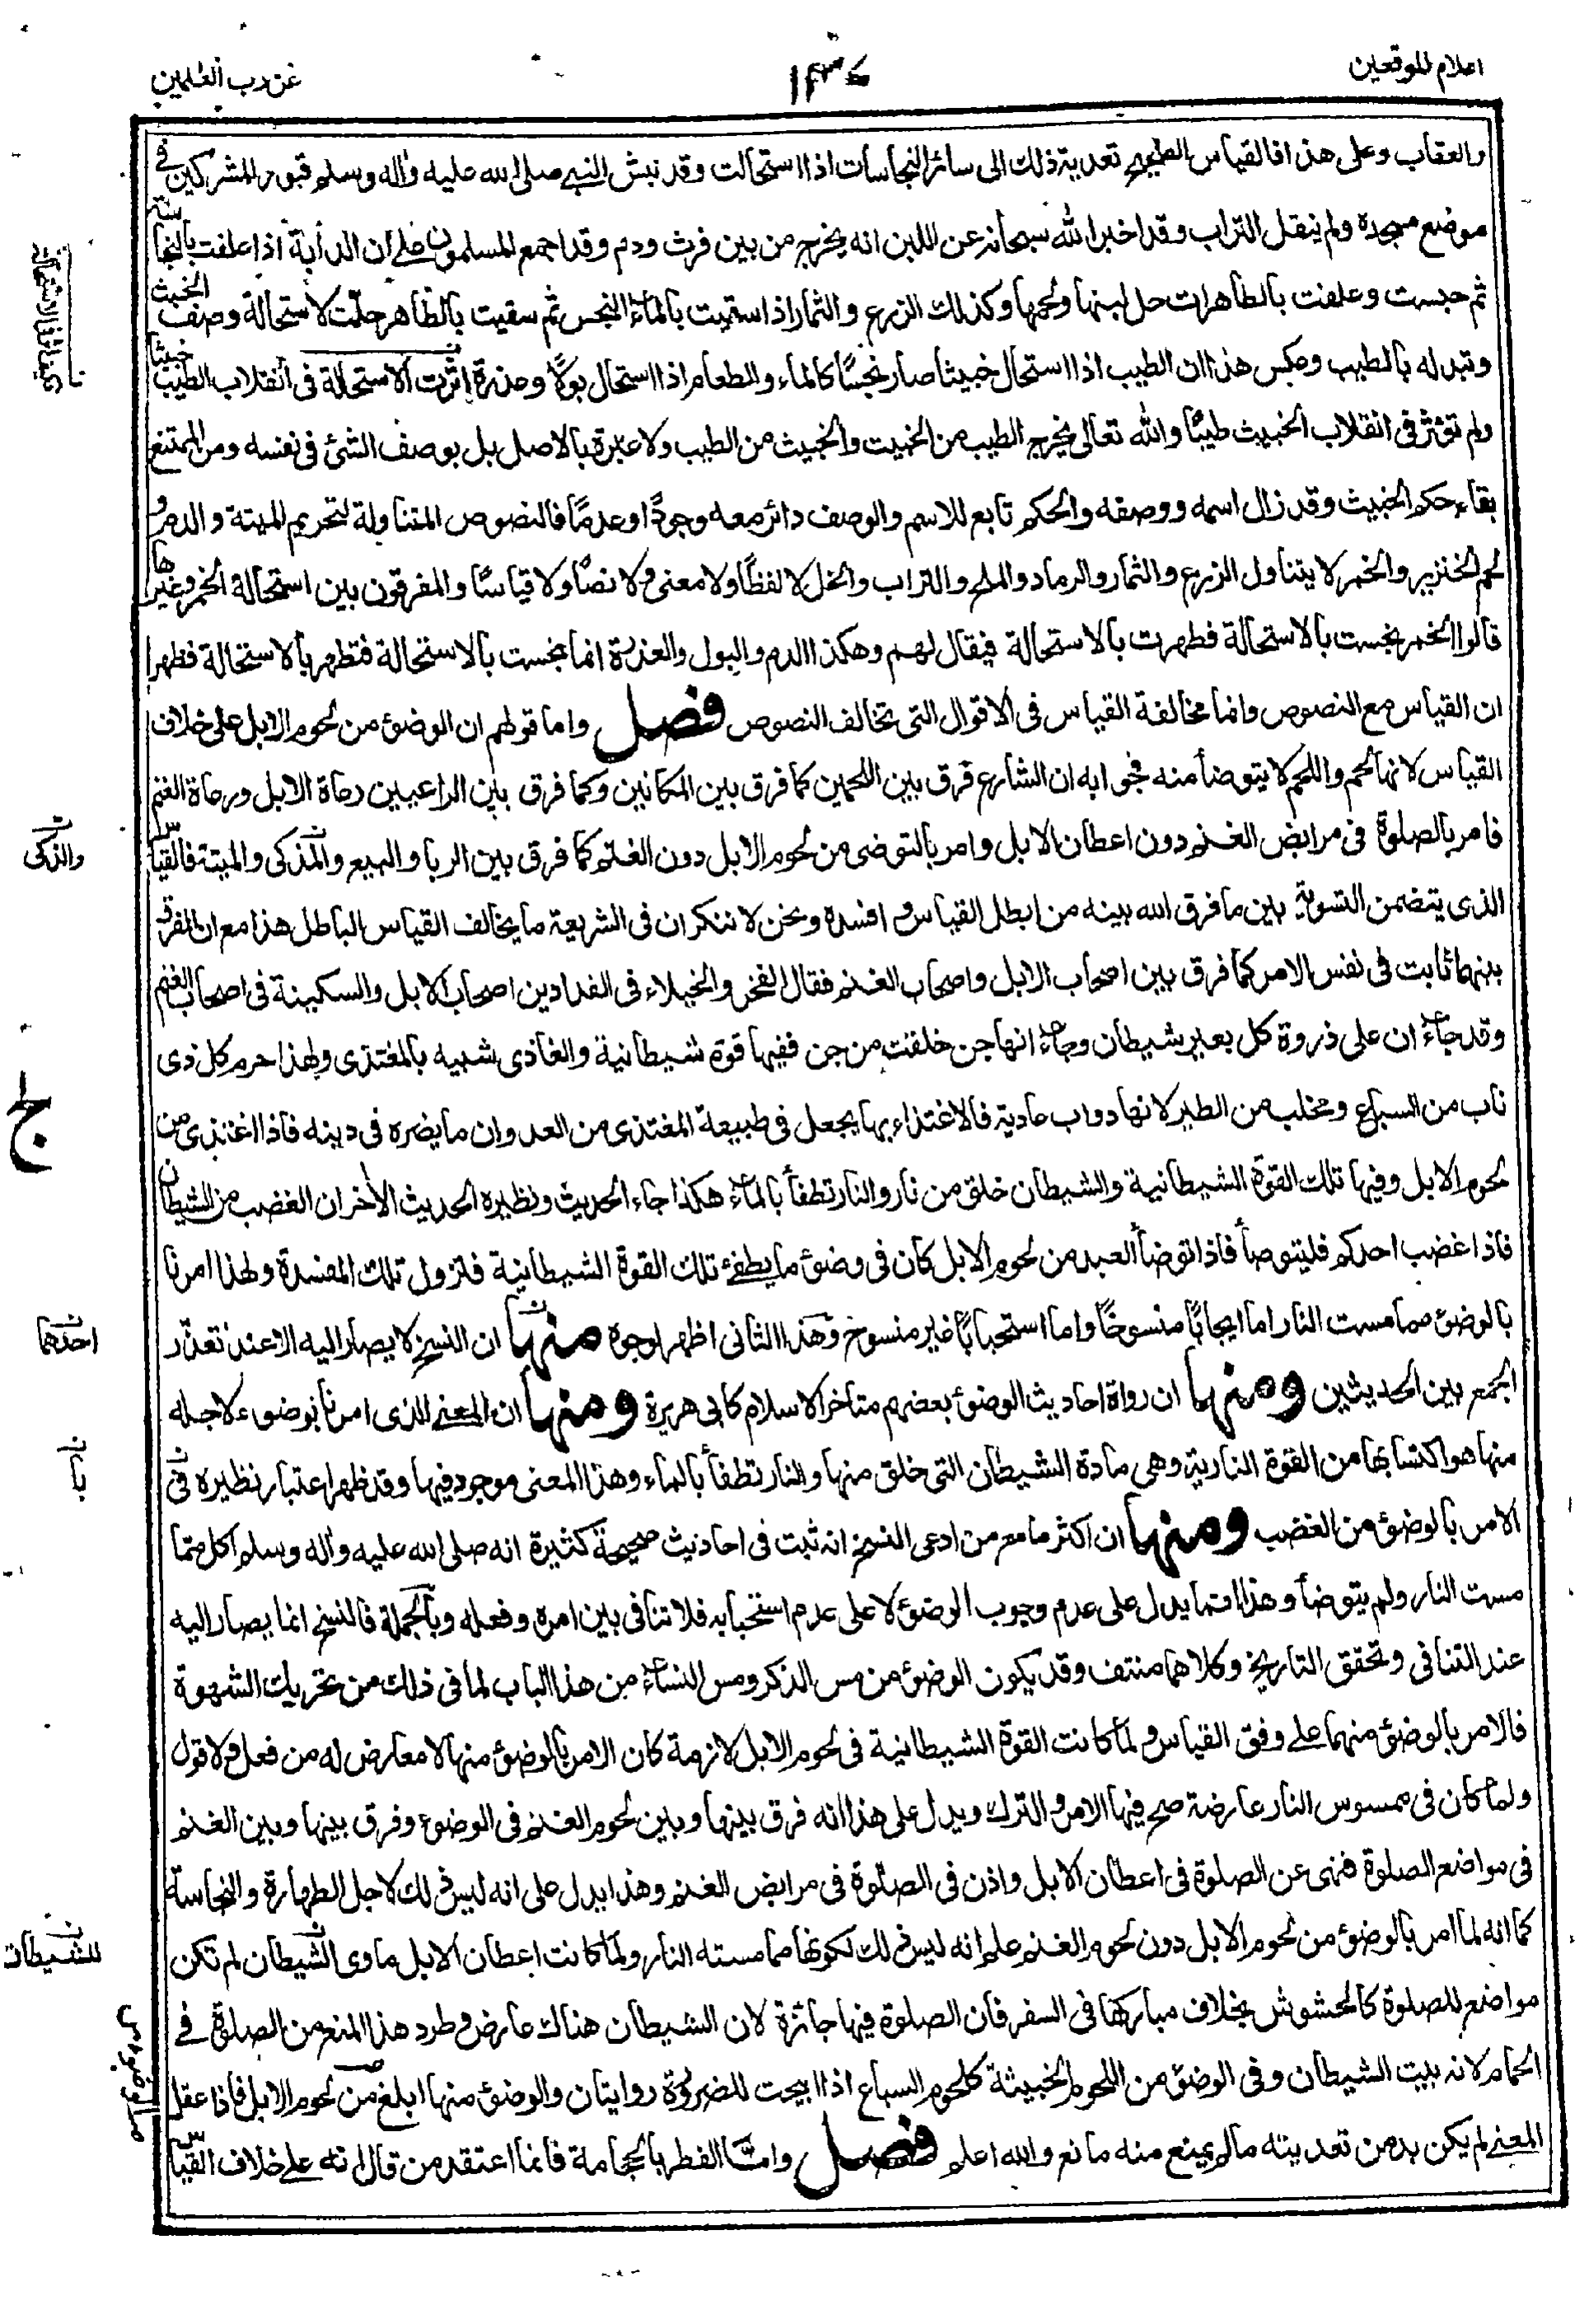 اعلام الموقعين
عن رب العٰلمين
والعقاب وعلى هذا فالقياس الصحيح تعدية ذلك الى سائر النجاسات اذا استحالت وقد نبش النبي صلى الله عليه واٰله وسلم قبور المشركين في
موضع مسجده ولم ينقل التراب وقد اخبر الله سبحانه عن اللبن انه يخرج من بين فرث ودم وقد اجمع المسلمون على ان الدابة اذا علفت بالنجاسة
ثم حبست وعلفت بالطاهرات حل لبنها ولحمها وكذلك الزرع والثمار اذا سقيت بالماء النجس ثم سقيت بالطاهر حلت لاستحالة وصف الخبث
وتبدله بالطيب وعكس هذا ان الطيب اذا استحال خبيثا صار نجسًا كالماء والطعام اذا استحال بولًا وعذرة اثرت الاستحالة في انقلاب الطيب خبيثًا
ولم تؤثر في انقلاب الخبيث طيبًا والله تعالى يخرج الطيب من الخبيث والخبيث من الطيب ولا عبرة بالاصل بل بوصف الشئ في نفسه ومن الممتنع
بقاء حكم الخبيث وقد زال اسمه ووصفه والحكم تابع للاسم والوصف دائر معه وجودًا وعدمًا فالنصوص المتناولة لتحريم الميتة والدم و
لحم الخنزير والخمر لا يتناول الزرع والثمار والرماد والملح والتراب والخل لا لفظًا ولا معنى ولا نصًا ولا قياسًا والمفرقون بين استحالة الخمر وغيرها
قالوا الخمر نجست بالاستحالة فطهرت بالاستحالة فيقال لهم وهكذا الدم والبول والعذرة انما نجست بالاستحالة فتطهر بالاستحالة فظهر
ان القياس مع النصوص وانما مخالفة القياس في الاقوال التي تخالف النصوص فصل واما قولهم ان الوضوء من لحوم الابل على خلاف
القياس لانها لحم واللحم لا يتوضأ منه فجوابه ان الشارع فرق بين اللحمين كما فرق بين المكانين وكما فرق بين الراعيين رعاة الابل ورعاة الغنم
فامر بالصلوة في مرابض الغنم دون اعطان الابل وامر بالتوضى من لحوم الابل دون الغنم كما فرق بين الربا والبيع والمذكى والميتة فالقياس
الذي يتضمن التسوية بين ما فرق الله بينه من ابطل القياس و افسده ونحن لا ننكر ان في الشريعة ما يخالف القياس الباطل هذا مع ان الفرق
بينهما ثابت في نفس الامر كما فرق بين اصحاب الابل واصحاب الغنم فقال الفخر والخيلاء في الفدادين اصحاب الابل والسكينة في اصحاب الغنم
وقد جاء ان على ذروة كل بعير شيطان وجاء انها جن خلقت من جن ففيها قوة شيطانية والغاذى شبيه بالمغتذى ولهذا حرم كل ذى
ناب من السباع ومخلب من الطير لانها دواب عادية فالاغتذاء بها يجعل في طبيعة المغتذى من العدوان ما يضره في دينه فاذا اغتذى من
لحوم الابل وفيها تلك القوة الشيطانية والشيطان خلق من نار والنار تطفأ بالماء هكذا جاء الحديث ونظيره الحديث الأخر ان الغضب من الشيطان
فاذا غضب احدكم فليتوضأ فاذا توضأ العبد من لحوم الابل كان في وضوئ ما يطفئ تلك القوة الشيطانية فتزول تلك المفسدة ولهذا امرنا
بالوضوء مما مست النار اما ايجابًا منسوخًا واما استحبابًا غير منسوخ وهذا الثانى اظهر لوجوه منها ان النسخ لا يصار اليه الا عند تعذر
الجمع بين الحديثين ومنها ان رواة احاديث الوضوء بعضهم متأخر الاسلام كابى هريرة ومنها ان المعنى الذى امرنا بوضوء لاجله
منها هو اكتسابها من القوة النارية وهى مادة الشيطان التى خلق منها والنار تطفأ بالماء وهذا المعنى موجود فيها وقد ظهر اعتبار نظيره في
الامر بالوضوء من الغضب ومنها ان اكثر ما مع من ادعى النسخ انه ثبت في احاديث صحيحة كثيرة انه صلى الله عليه واٰله وسلم اكل مما
مست النار ولم يتوضأ وهذا انما يدل على عدم وجوب الوضوء لا على عدم استحبابه فلا تنافى بين امره وفعله وبالجملة فالنسخ انما يصار اليه
عند التنافى وتحقق التاريخ وكلاهما منتف وقد يكون الوضوء من مس الذكر ومس النساء من هذا الباب لما في ذلك من تحريك الشهوة
فالامر بالوضوء منهما على وفق القياس و لما كانت القوة الشيطانية في لحوم الابل لازمة كان الامر بالوضوء منها لا معارض له من فعل ولا قول
ولما كان في ممسوس النار عارضة صح فيها الامر و الترك ويدل على هذا انه فرق بينها وبين لحوم الغنم في الوضوء وفرق بينها وبين الغنم
في مواضع الصلوة فنهى عن الصلوة في اعطان الابل واذن في الصلوة في مرابض الغنم وهذا يدل على انه ليس ذلك لاجل الطهارة والنجاسة
كما انه لما امر بالوضوء من لحوم الابل دون لحوم الغنم علم انه ليس ذلك لكونها مما مسته النار ولما كانت اعطان الابل ماوى الشيطان لم تكن
مواضع للصلوة كالحشوش بخلاف مباركها في السفر فان الصلوة فيها جائزة لان الشيطان هناك عارض وطرد هذا المنع من الصلوة في
الحمام لانه بيت الشيطان وفي الوضوء من اللحوم الخبيثة كلحوم السباع اذا ابيحت للضرورة روايتان والوضوء منها ابلغ من لحوم الابل فاذا عقل
المعنى لم يكن بد من تعديته ما لم يمنع منه مانع والله اعلم فصل واما الفطر بالحجامة فانما اعتقد من قال انه على خلاف القياس
والذكى
احدهما
للشيطان